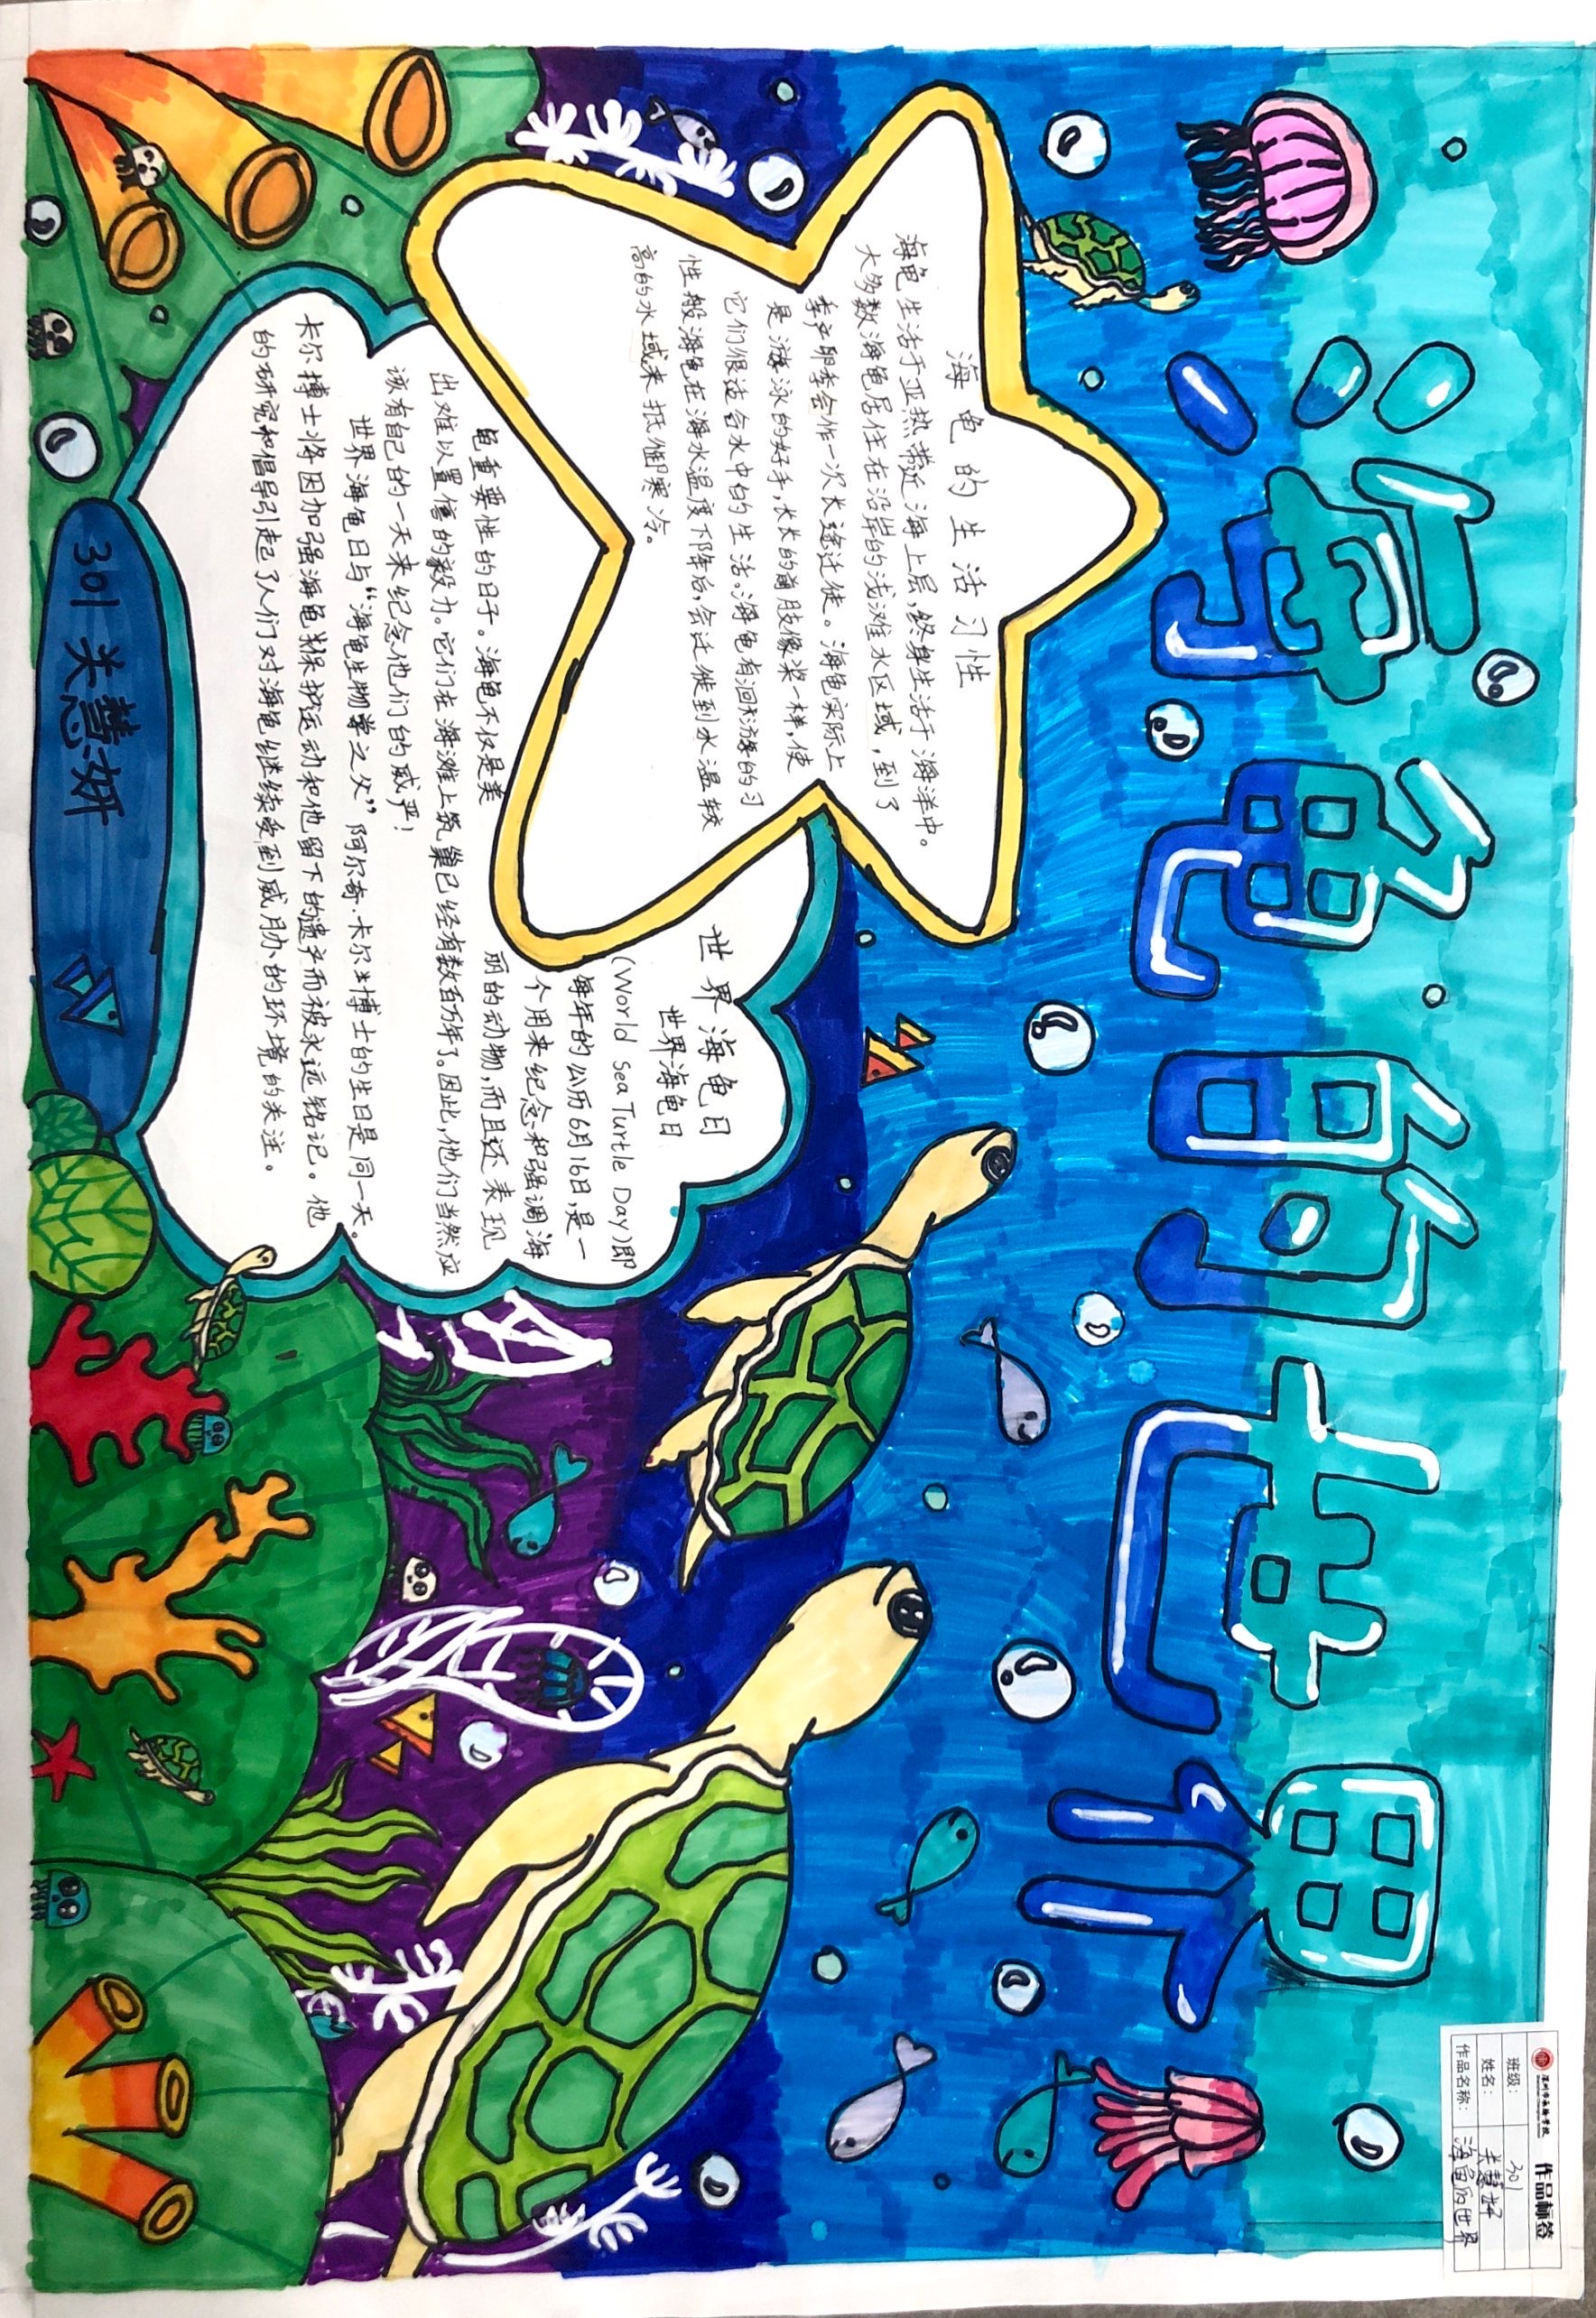 海龟的世界
海龟的生活习性
海龟生活于亚热带近海上层,终身生活于海洋中。
大多数海龟居住在沿岸的浅滩水区域,到了
季产卵季会作一次长途迁徒。海龟实际上
是游泳的好手,长长的前肢像桨一样,使
它们很适合水中的生活。海龟有洄游的习
性般海龟在海水温度下降后,会迁徙到水温较
高的水域来抵御寒冷。
世界海龟日
世界海龟日
(World Sea Turtle Day)即
每年的公历6月16日,是一
个用来纪念和强调海
龟重要性的日子。海龟不仅是美
丽的动物,而且还表现
出难以置信的毅力。它们在海滩上筑巢已经有数百万年了。因此,他们当然应
该有自己的一天来纪念他们的威严!
世界海龟日与“海龟生物学之父”阿尔奇·卡尔博士的生日是同一天。
卡尔博士将因加强海龟保护运动和他留下的遗产而被永远铭记。他
的研究和倡导引起了人们对海龟继续受到威胁的环境的关注。
301 关慧妍
作品标签
班级: 301
姓名: 关慧妍
作品名称: 海龟的世界